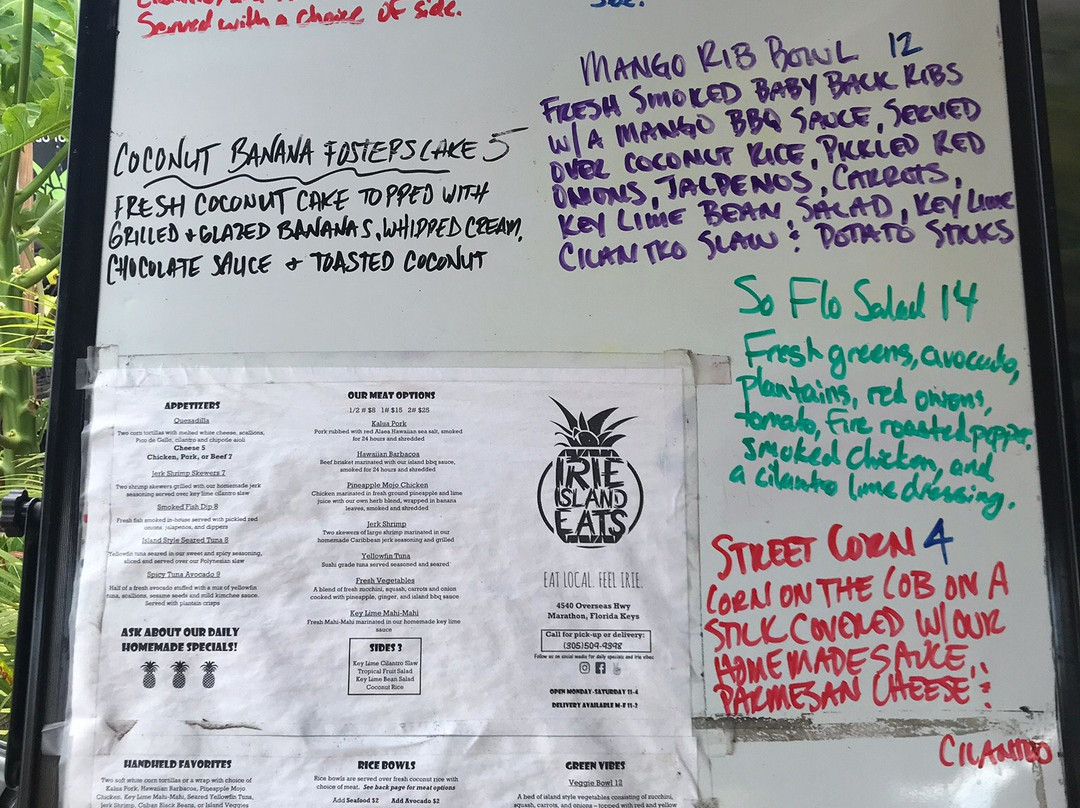 Served with a choice of side.
MANGO RIB BOWL 12
FRESH SMOKED BABY BACK RIBS
W/A MANGO BBQ SAUCE, SERVED
OVER COCONUT RICE, PICKLED RED
ONIONS, JALPENOS, CARROTS,
KEY LIME BEAN SALAD, KEY LIME
CILANTRO SLAW & POTATO STICKS
COCONUT BANANA FOSTERS CAKE 5
FRESH COCONUT CAKE TOPPED WITH
GRILLED + GLAZED BANANAS, WHIPPED CREAM,
CHOCOLATE SAUCE + TOASTED COCONUT
So Flo Salad 14
Fresh greens, avocado,
plantains, red onions,
tomato, Fire roasted pepper,
smoked chicken, and
a cilantro lime dressing.
STREET CORN 4
CORN ON THE COB ON A
STICK COVERED W/ OUR
HOMEMADE SAUCE,
PARMESAN CHEESE &
CILANTRO
APPETIZERS
Quesadilla
Two corn tortillas with melted white cheese, scallions,
Pico de Gallo, cilantro and chipotle aioli
Cheese 5
Chicken, Pork, or Beef 7
Jerk Shrimp Skewers 7
Two shrimp skewers grilled with our homemade jerk
seasoning served over key lime cilantro slaw
Smoked Fish Dip 8
Fresh fish smoked in-house served with pickled red
onions, jalapenos, and dippers
Island Style Seared Tuna 8
Yellowfin tuna seared in our sweet and spicy seasoning,
sliced and served over our Polynesian slaw
Spicy Tuna Avocado 9
Half of a fresh avocado stuffed with a mix of yellowfin
tuna, scallions, sesame seeds and mild kimchee sauce.
Served with plantain crisps
ASK ABOUT OUR DAILY
HOMEMADE SPECIALS!
OUR MEAT OPTIONS
1/2 # $8 1# $15 2# $25
Kalua Pork
Pork rubbed with red Alaea Hawaiian sea salt, smoked
for 24 hours and shredded
Hawaiian Barbacoa
Beef brisket marinated with our island bbq sauce,
smoked for 24 hours and shredded
Pineapple Mojo Chicken
Chicken marinated in fresh ground pineapple and lime
juice with our own herb blend, wrapped in banana
leaves, smoked and shredded
Jerk Shrimp
Two skewers of large shrimp marinated in our
homemade Caribbean jerk seasoning and grilled
Yellowfin Tuna
Sushi grade tuna served seasoned and seared
Fresh Vegetables
A blend of fresh zucchini, squash, carrots and onion
cooked with pineapple, ginger, and island bbq sauce
Key Lime Mahi-Mahi
Fresh Mahi-Mahi marinated in our homemade key lime
sauce
SIDES 3
Key Lime Cilantro Slaw
Tropical Fruit Salad
Key Lime Bean Salad
Coconut Rice
IRIE
ISLAND
EATS
EAT LOCAL. FEEL IRIE.
4540 Overseas Hwy
Marathon, Florida Keys
Call for pick-up or delivery:
(305)509-9398
Follow us on social media for daily specials and irie vibes
OPEN MONDAY-SATURDAY 11-4
DELIVERY AVAILABLE M-F 11-2
HANDHELD FAVORITES
Two soft white corn tortillas or a wrap with choice of
Kalua Pork, Hawaiian Barbacoa, Pineapple Mojo
Chicken, Key Lime Mahi-Mahi, Seared Yellowfin Tuna,
Jerk Shrimp, Cuban Black Beans, or Island Veggies
RICE BOWLS
Rice bowls are served over fresh coconut rice with
choice of meat. See back page for meat options
Add Seafood $2 Add Avocado $2
GREEN VIBES
Veggie Bowl 12
A bed of island style vegetables consisting of zucchini,
squash, carrots, and onions – topped with red and yellow